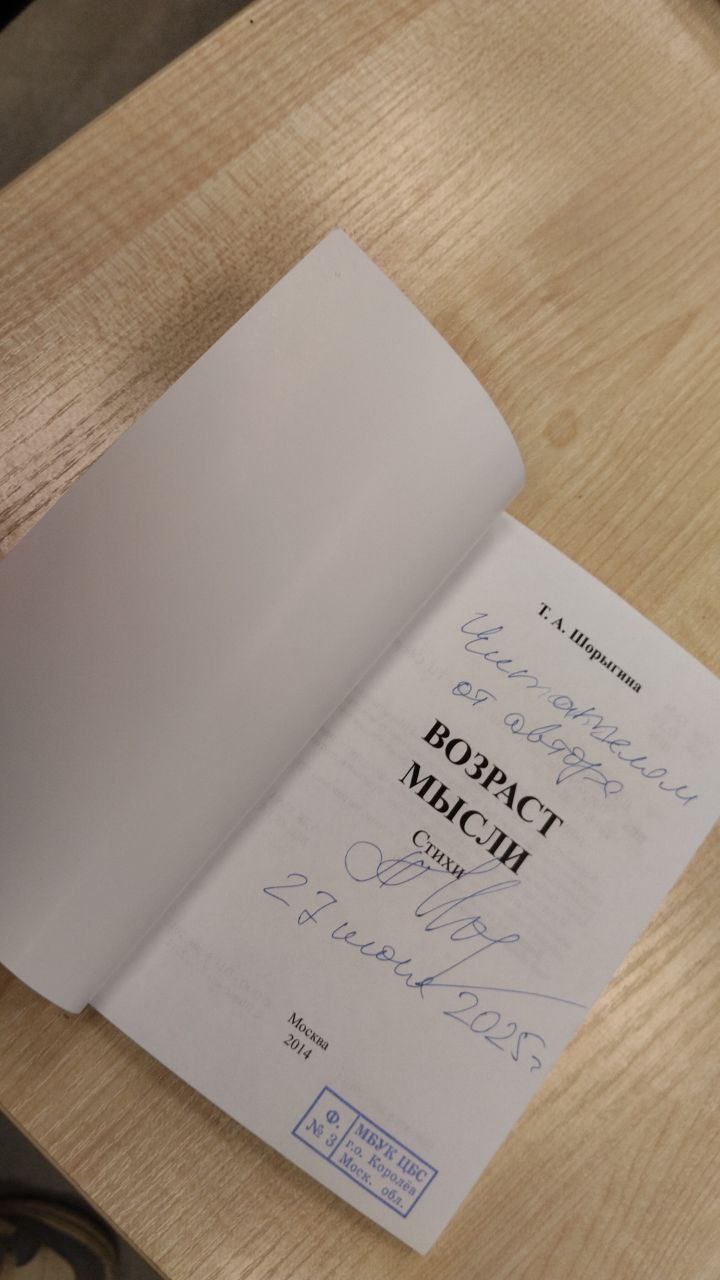 Т. А. Шорыгина
Читателям
от автора
ВОЗРАСТ
МЫСЛИ
Стихи
27 июня 2025г
Москва
2014
Ф.
№ 3
МБУК ЦБС
г.о. Королёв
Моск. обл.